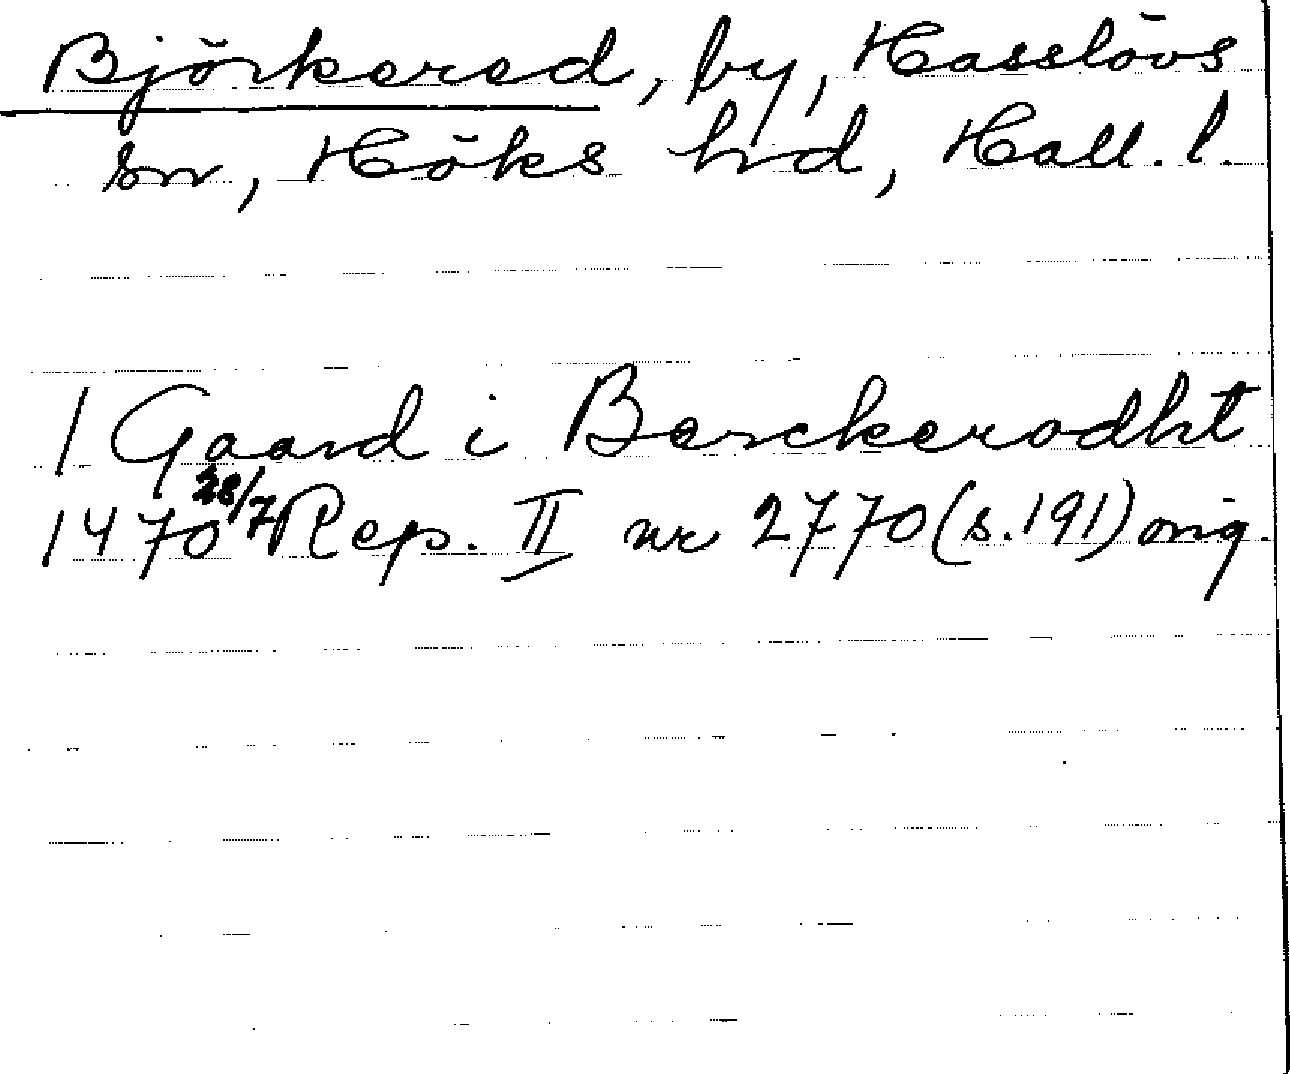 Björkered, by, Hasslövs
sn, Höks hrd, Hall. l.
1 Gaard i Berckerodht
1470 28/7 Rep. II nr 2770 (s. 191) orig.